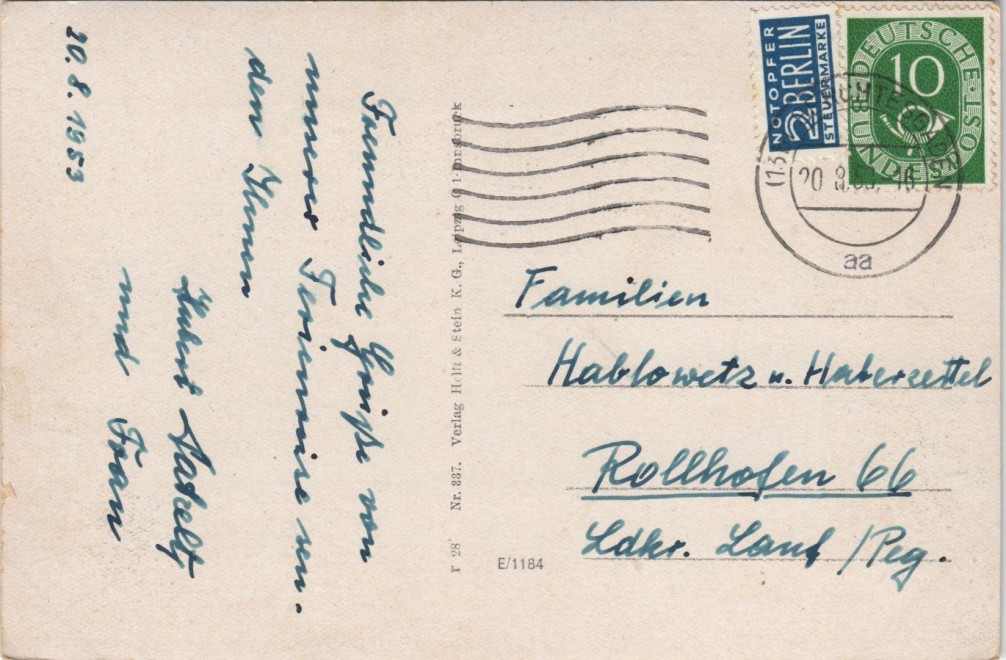 20.8.1953
Freundliche Grüße von
unserer Ferienreise sen-
den Ihnen
Hubert
und Frau
r 28 Nr. 887. Verlag & Stein K. G., Leipzig C 1-Innsbruck
E/1184
NOTOPFER
2 BERLIN
STEUERMARKE
DEUTSCHE BUNDESPOST
10
(13
20.8.53.-16
aa
Familien
Hablowetz u. Haberzettel
Rollhofen 66
Ldkr. Lauf /Peg.